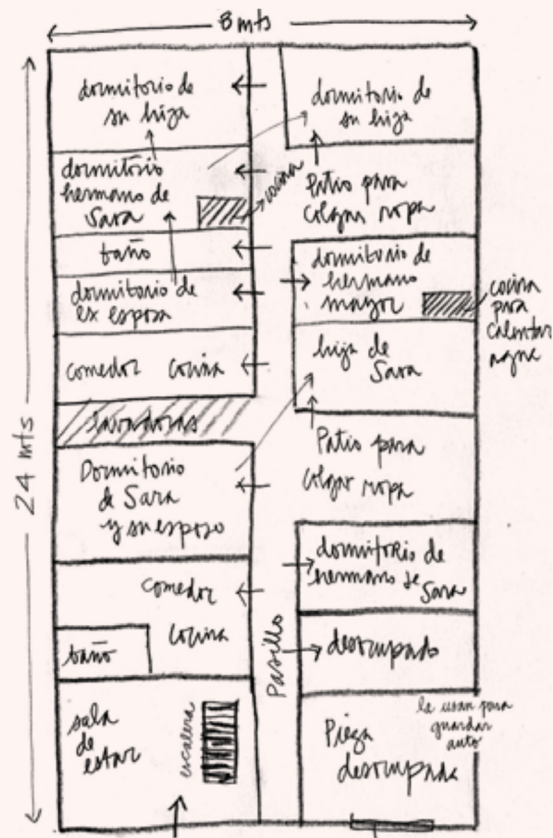 8 mts
24 mts
dormitorio de
su hija
dormitorio
hermano de
Sara
cocina
baño
dormitorio de
ex esposa
comedor cocina
lavadoras
Dormitorio
de Sara
y su esposo
comedor
cocina
baño
sala
de
estar
escalera
Pasillo
dormitorio de
su hija
Patio para
colgar ropa
dormitorio de
hermano
mayor
cocina
para
calentar
agua
hija de
Sara
Patio para
colgar ropa
dormitorio de
hermano de
Sara
desocupado
la usan para
guardar
auto
Pieza
desocupada